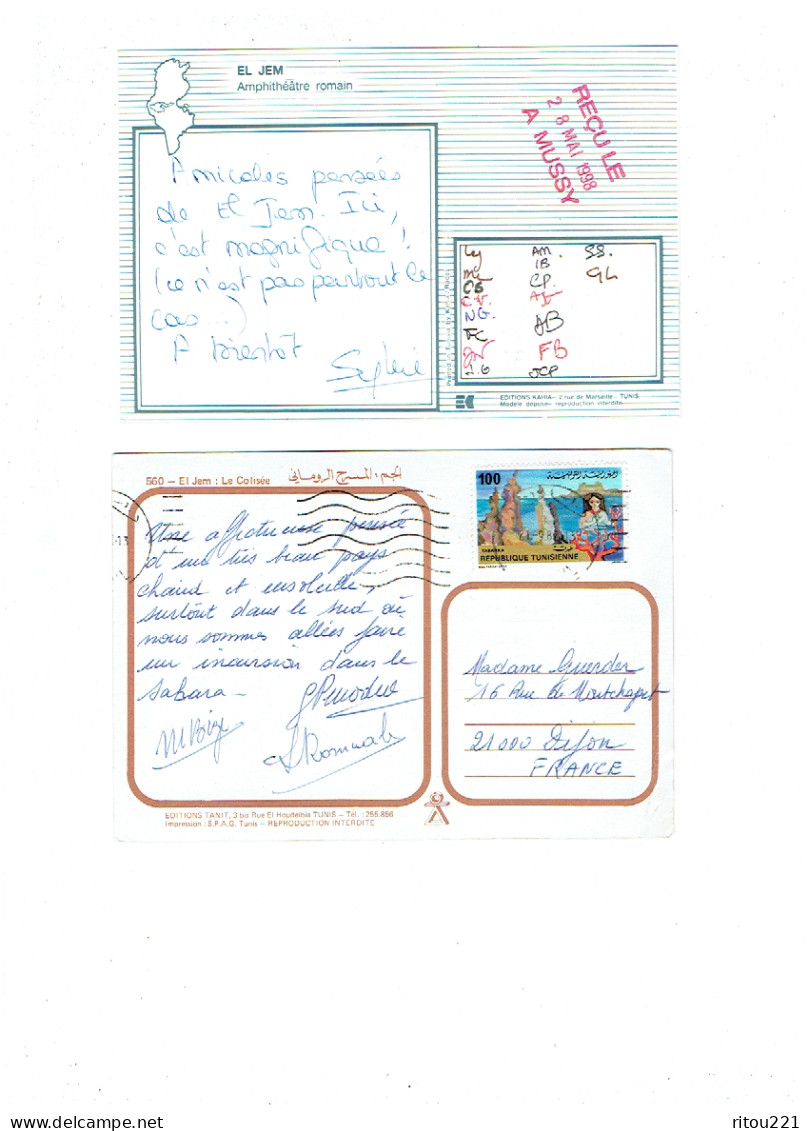 EL JEM
Amphithéâtre romain
REÇU LE
28 MAI 1998
A MUSSY
Amicales pensées
de El Jem. Ici,
c'est magnifique !
(ce n'est pas partout le
cas...)
A bientôt
Sylvie
AM. 38.
IB
CP.
CB
NG.
AB
FC
FB
J.G JCP
EDITIONS KAHIA - 2 rue de Marseille - TUNIS
Modèle déposé - reproduction interdite
560 – El Jem : Le Colisée الجم : المسرح الروماني
100
الجمهورية التونسية
TABARKA
REPUBLIQUE TUNISIENNE
Une affectueuse pensée
d'un très beau pays
chaud et ensoleillé,
surtout dans le sud où
nous sommes allées faire
une incursion dans le
Sahara -
Madame Guerder
16 Rue de Montchapet
21000 Dijon
FRANCE
EDITIONS TANIT, 3 bis Rue El Houdeibia TUNIS – Tél. : 255.856
Impression : S.P.A.G. Tunis – REPRODUCTION INTERDITE
ritou221